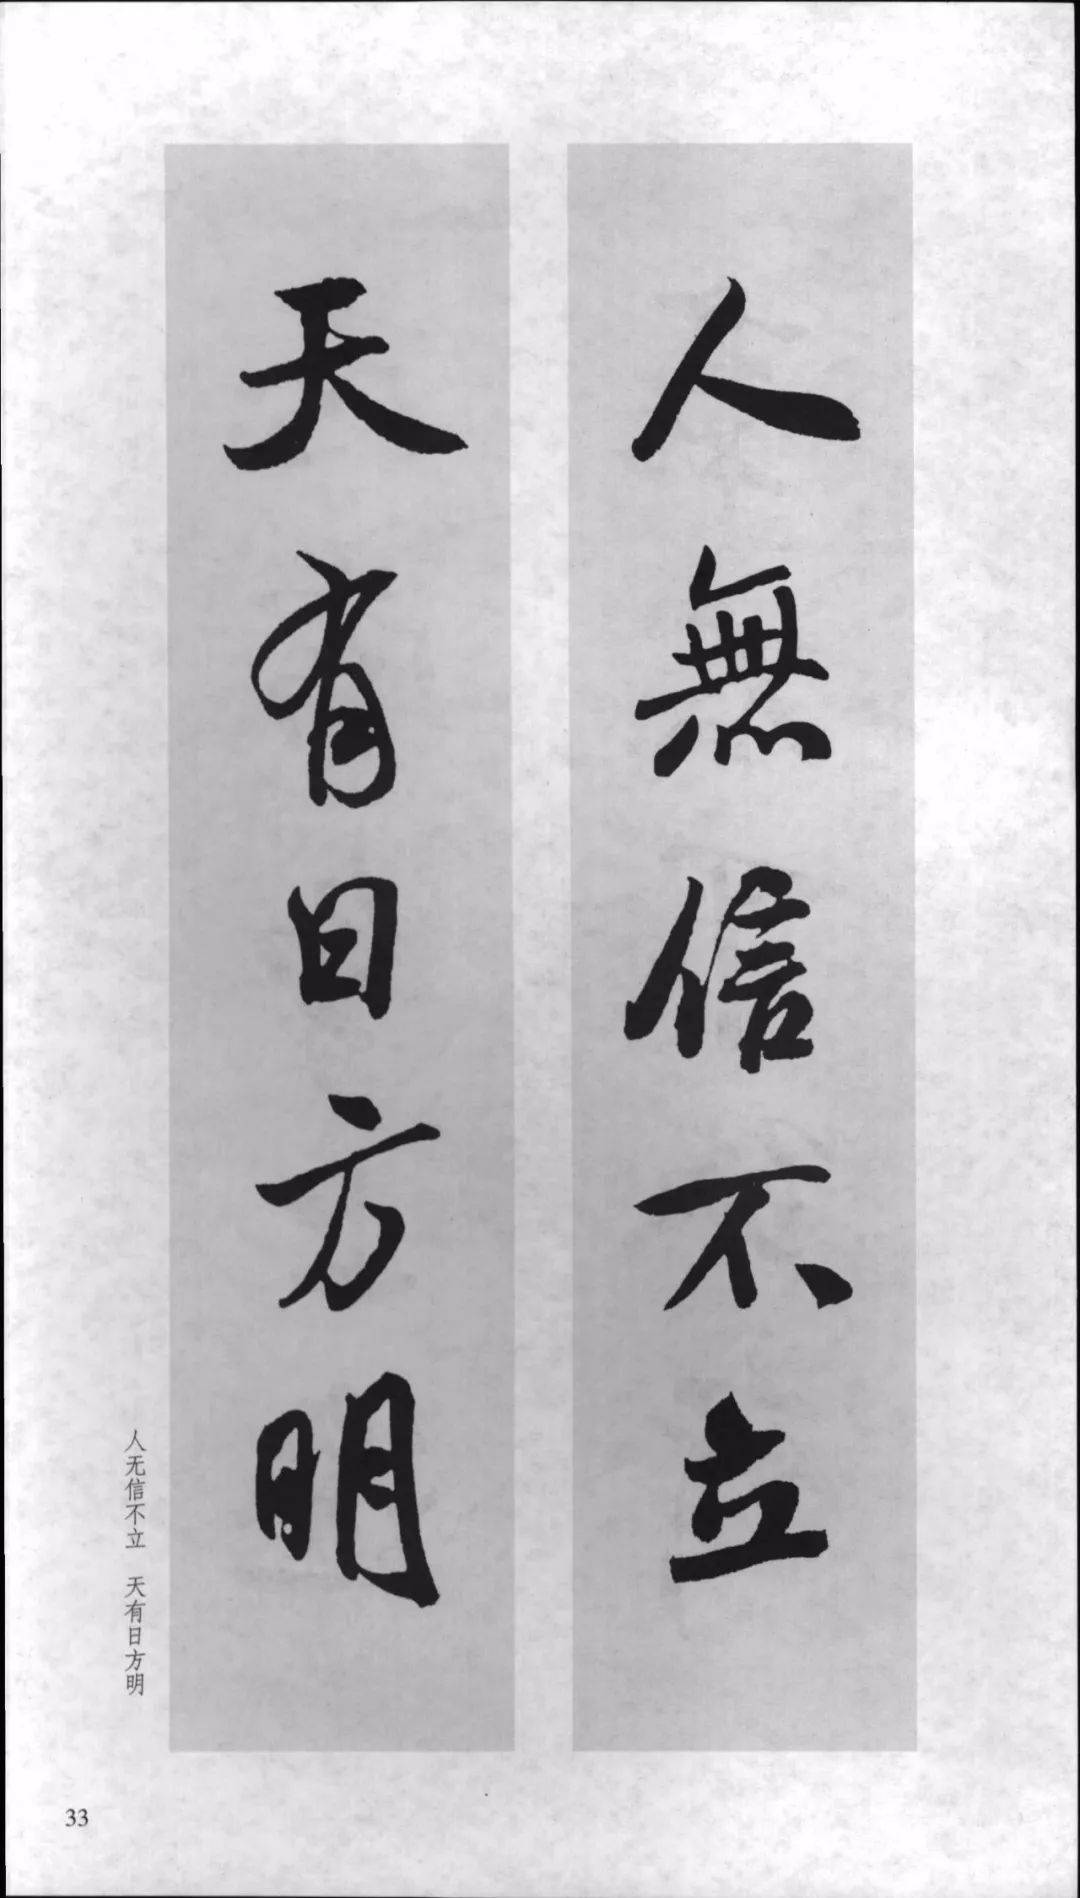 人無信不立
天有日方明
人无信不立 天有日方明
33